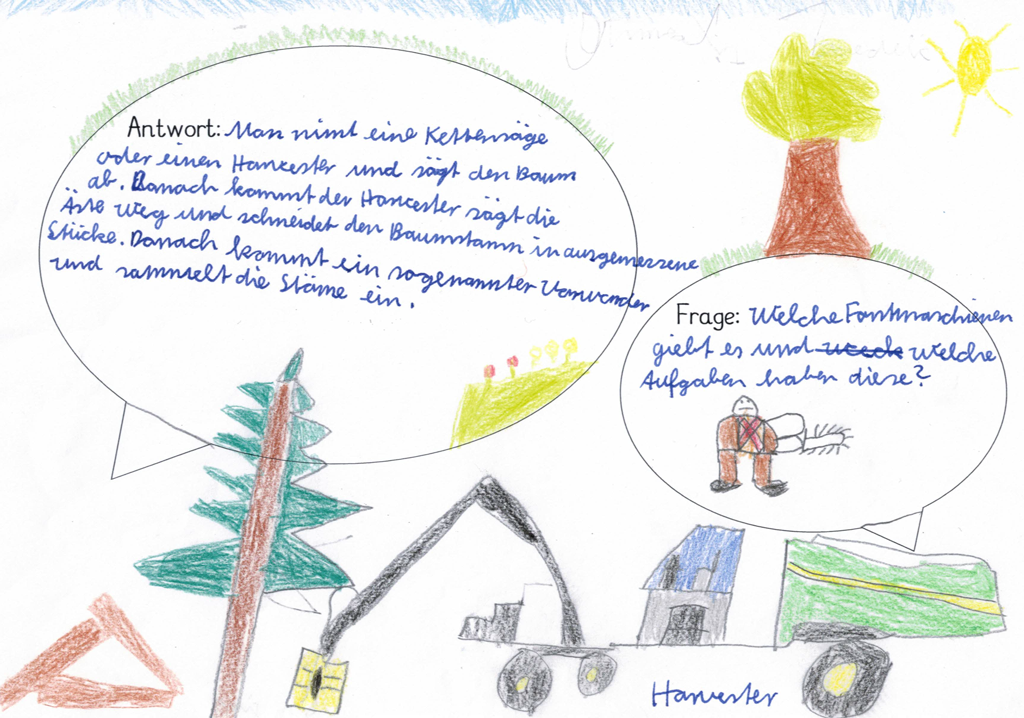 Antwort: Man nimt eine Kettensäge
oder einen Harvester und sägt den Baum
ab. Danach kommt der Harvester sägt die
Äste Weg und schneidet den Baumstamm in ausgemessene
Stücke. Danach kommt ein sogenannter Vorwender
und sammelt die Stäme ein.
Frage: Welche Forstmaschienen
giebt es und welche
Aufgaben haben diese?
Harvester